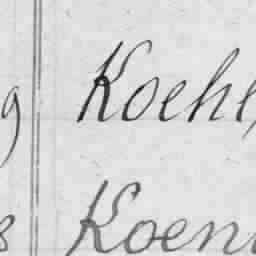 9 Koehl
8 Koen